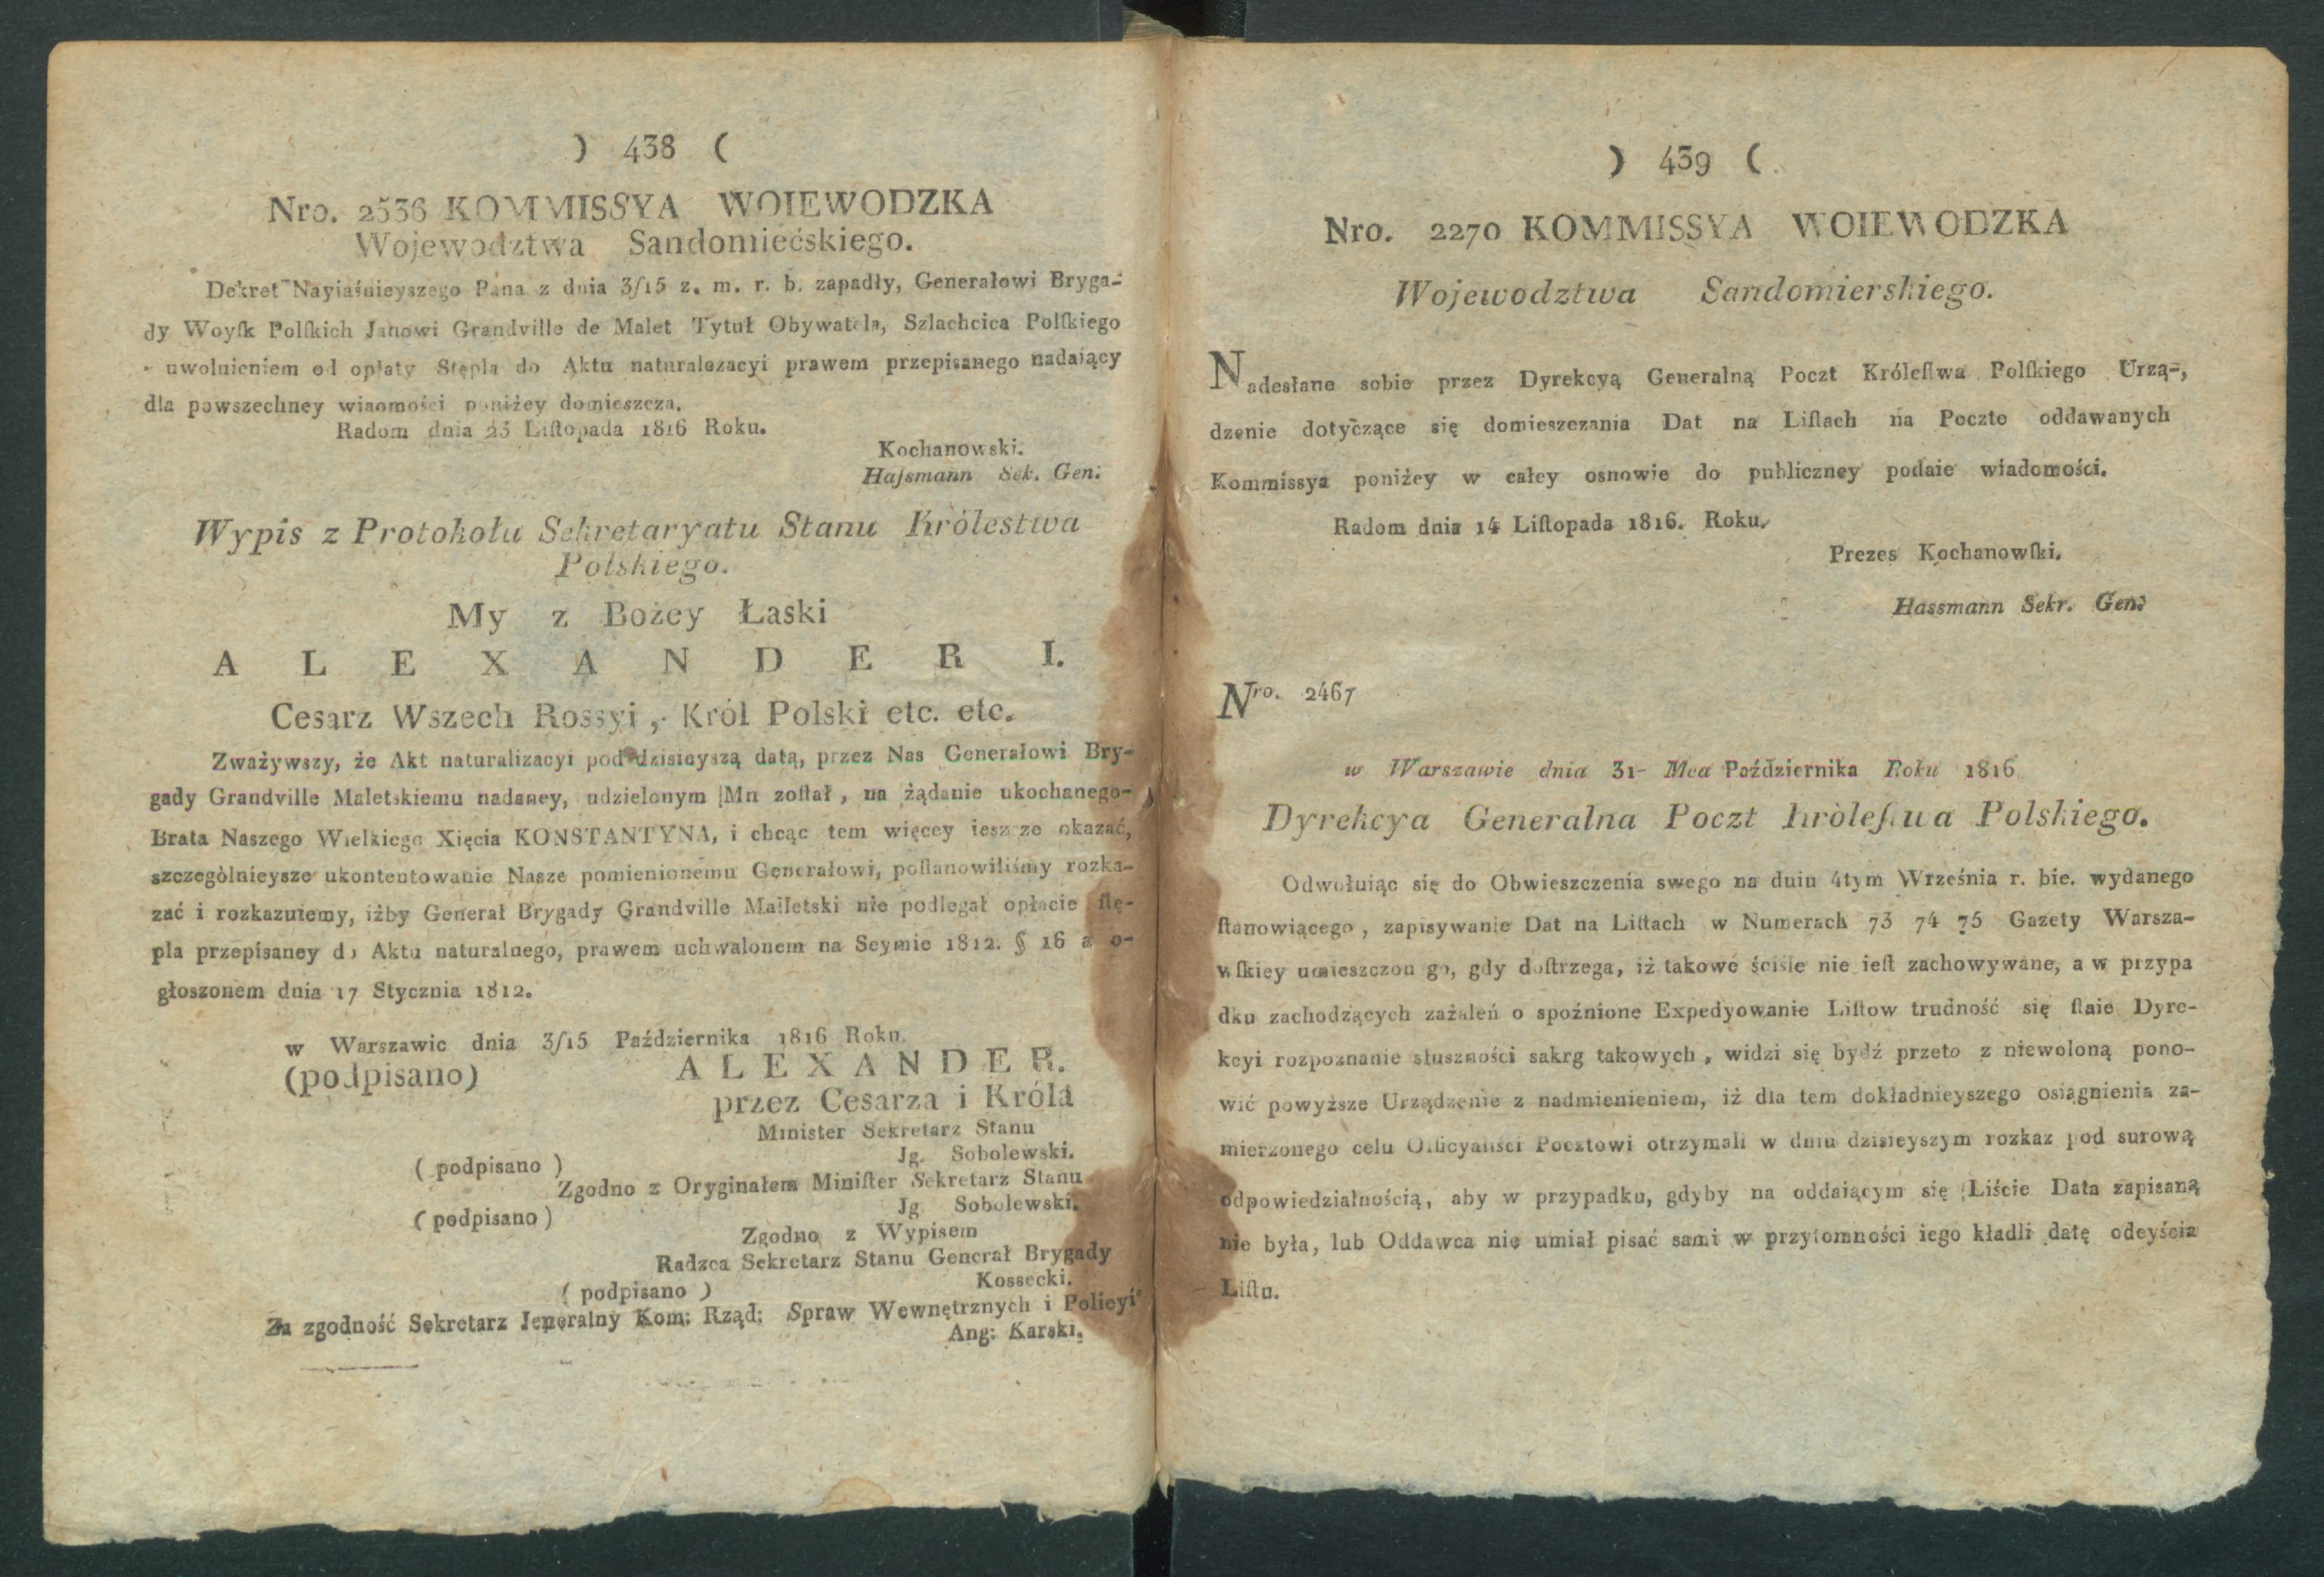 ) 438 (
Nro. 2536 KOMMISSYA WOIEWODZKA
Wojewodztwa Sandomiećskiego.
Dekret Nayiaśnieyszego Pana z dnia 3/15 z. m. r. b. zapadły, Generałowi Bryga-
dy Woyſk Polſkich Janowi Grandville de Malet Tytuł Obywatela, Szlachcica Polſkiego
- uwolnieniem od opłaty Stępla do Aktu naturalezacyi prawem przepisanego nadaiący
dla powszechney wiaomości poniżey domieszcza.
Radom dnia 23 Liſtopada 1816 Roku.
Kochanowski.
Haſsmann Sek. Gen:
Wypis z Protokołu Sekretaryatu Stanu Królestwa
Polskiego.
My z Bożey Łaski
A L E X A N D E R I.
Cesarz Wszech Rossyi, Król Polski etc. etc.
Zważywszy, że Akt naturalizacyi pod dzisieyszą datą, przez Nas Generałowi Bry-
gady Grandville Maletskiemu nadaney, udzielonym Mn zoſtał, na żądanie ukochanego-
Brata Naszego Wielkiego Xięcia KONSTANTYNA, i chcąc tem więcey ieszcze okazać,
szczególnieysze ukontentowanie Nasze pomienionemu Generałowi, poſtanowiliśmy rozka-
zać i rozkazuiemy, iżby Generał Brygady Grandville Malletski nie podlegał opłacie ſtę-
pla przepisaney do Aktu naturalnego, prawem uchwalonem na Seymie 1812. § 16 a o-
głoszonem dnia 17 Stycznia 1812.
w Warszawic dnia 3/15 Października 1816 Roku.
(podpisano) A L E X A N D E R.
przez Cesarza i Króla
Minister Sekretarz Stanu
( podpisano ) Jg. Sobolewski.
Zgodno z Oryginałem Miniſter Sekretarz Stanu
( podpisano ) Jg Sobolewski.
Zgodno z Wypisem
Radzca Sekretarz Stanu Generał Brygady
( podpisano ) Kossecki.
Za zgodność Sekretarz Jeneralny Kom: Rząd: Spraw Wewnętrznych i Policyi
Ang: Karski.
) 439 (
Nro. 2270 KOMMISSYA WOIEWODZKA
Wojewodztwa Sandomierskiego.
Nadesłane sobie przez Dyrekcyą Generalną Poczt Króleſtwa Polſkiego Urzą-,
dzenie dotyczące się domieszczania Dat na Liſtach na Poczte oddawanych
Kommissya poniżey w całey osnowie do publiczney podaie wiadomości.
Radom dnia 14 Liſtopada 1816. Roku.
Prezes Kochanowſki.
Hassmann Sekr. Gen:
Nro. 2467
w Warszawie dnia 31- Mca Października Roku 1816
Dyrekcya Generalna Poczt Króleſtwa Polskiego.
Odwołuiąc się do Obwieszczenia swego na duiu 4tym Września r. bie. wydanego
ſtanowiącego, zapisywanie Dat na Liſtach w Numerach 73 74 75 Gazety Warsza-
wſkiey umieszczon go, gdy doſtrzega, iż takowe ściśle nie ieſt zachowywane, a w przypa
dku zachodzących zażaleń o spoźnione Expedyowanie Liſtow trudność się ſtaie Dyre-
kcyi rozpoznanie słuszności sakrg takowych, widzi się bydź przeto z niewoloną pono-
wić powyższe Urządzenie z nadmienieniem, iż dla tem dokładnieyszego osiągnienia za-
mierzonego celu Officyaliści Pocztowi otrzymali w dniu dzisieyszym rozkaz pod surową
odpowiedzialnością, aby w przypadku, gdyby na oddaiącym się Liście Data zapisaną
nie była, lub Oddawca nie umiał pisać sami w przytomności iego kładli datę odeyścia
Liſtu.